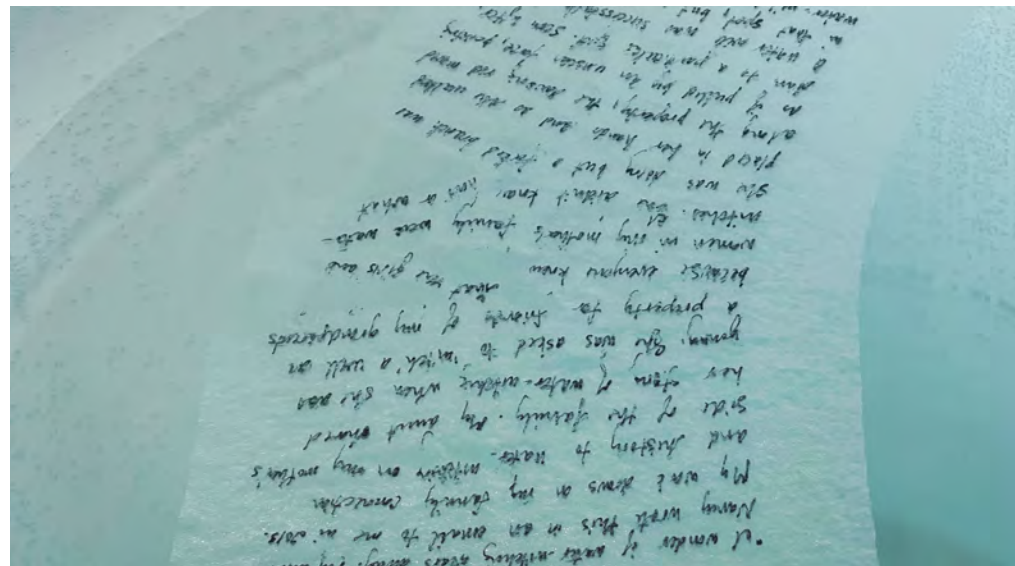 "I wonder if water-witching
Nancy wrote this in an email to me in
My work draws on my family connection
and history to water-witching on my mother's
side of the family. My aunt shared
her story of water-witching when she was
young. She was asked to "witch" a well on
a property for friends of my grandparents
because everyone knew that the girls and
women in my mother's family were water-
witches. She didn't know how or what
she was doing but a forked branch was
placed in her hands and as she walked
along the property, the divining rod moved
as if pulled by an unseen force, pointing
down to a particular spot. Soon after,
a water well was successfully
in that spot, but